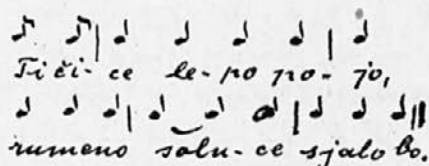 Tiči- ce le- po po- jo,
rumeno soln- ce sjalo bo.